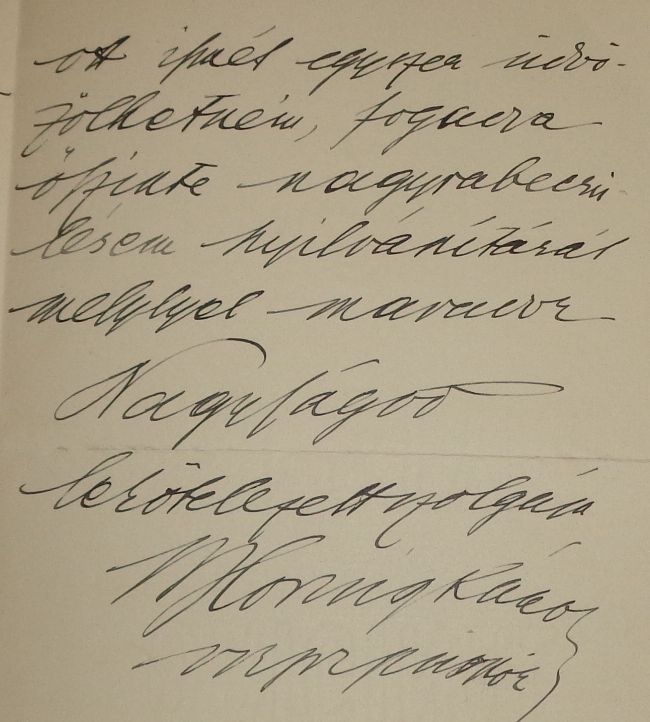 ott ismét egyszer üdvö-
zölhetném, fogadja
őszinte nagyrabecsü-
lésem nyilvánítását
melylyel maradok
Nagyságod
lekötelezett szolgája
Hornig Károly